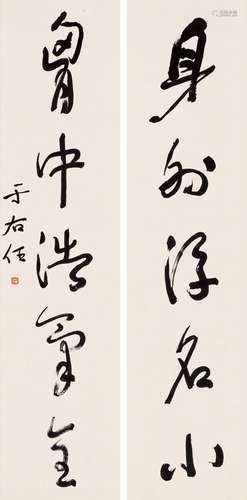 身外浮名小
胷中浩氣全
于右任